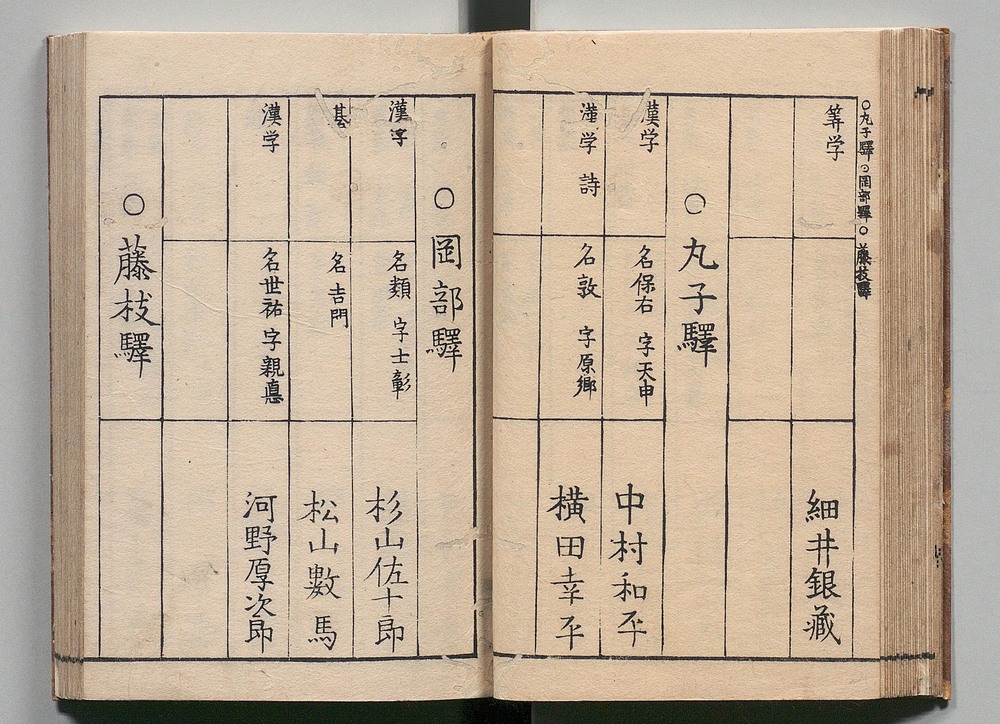 ○丸子驛○岡部驛○藤枝驛
筭学 細井銀藏
○丸子驛
漢学 名保右 字天申 中村和平
漢学 詩 名敦 字原卿 横田幸平
○岡部驛
漢字 名類 字士彰 杉山佐十郎
碁 名吉門 松山數馬
漢学 名世祐 字親悳 河野厚次郎
○藤枝驛